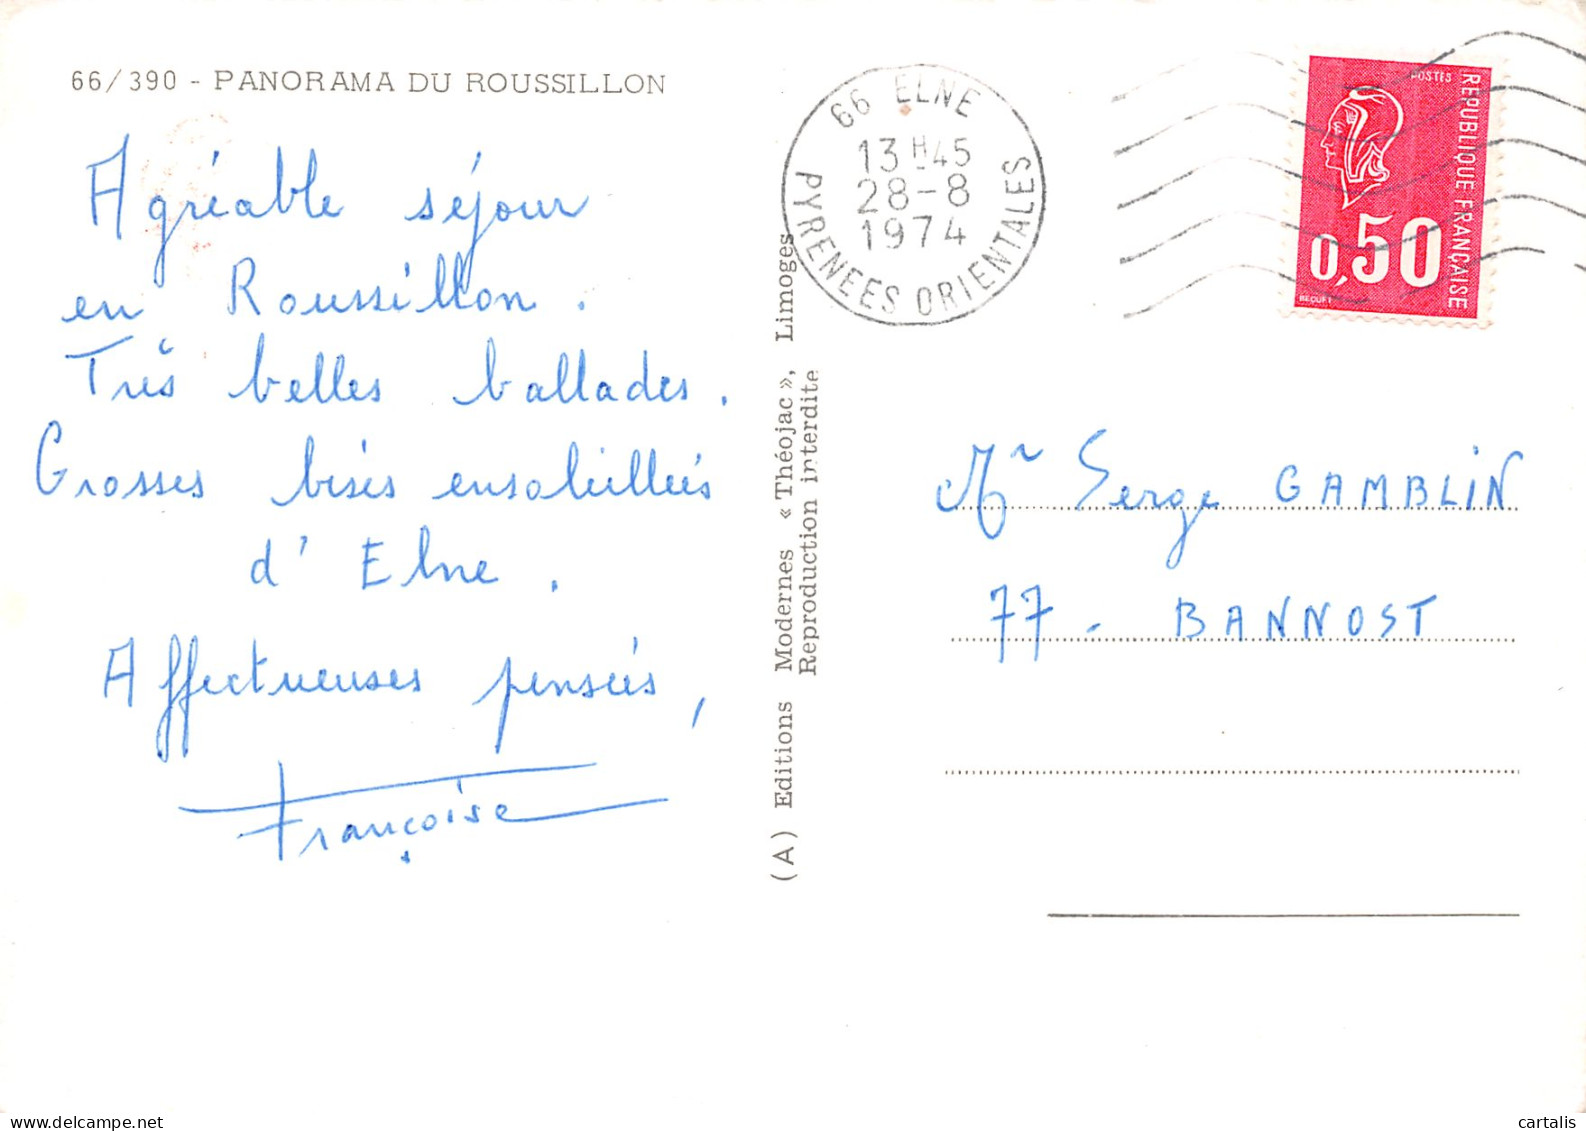 66/390 - PANORAMA DU ROUSSILLON
Agréable séjour
en Roussillon.
Très belles ballades.
Grosses bises ensoleillées
d'Elne.
Affectueuses pensées,
Françoise
(A) Editions Modernes « Théojac », Limoges
Reproduction interdite
66 ELNE
13H45
28-8
1974
PYRENEES ORIENTALES
POSTES
REPUBLIQUE FRANÇAISE
0,50
BEQUET
Mr Serge GAMBLIN
77 - BANNOST
delcampe.net
cartalis